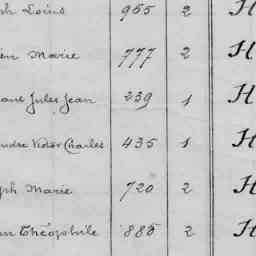 ph Louis 965 2 H
en Marie 777 2 H
Jules Jean 239 1 H
Victor Charles 435 1 H
ph Marie 720 2 H
Théophile 885 2 H